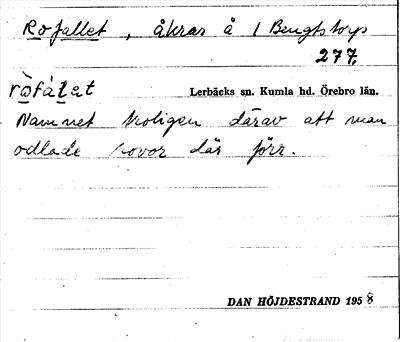 Rofallet, åkrar å 1 Bengtstorp
277.
ròfálet Lerbäcks sn. Kumla hd. Örebro län.
Namnet troligen därav att man
odlade rovor där förr.
DAN HÖJDESTRAND 1958